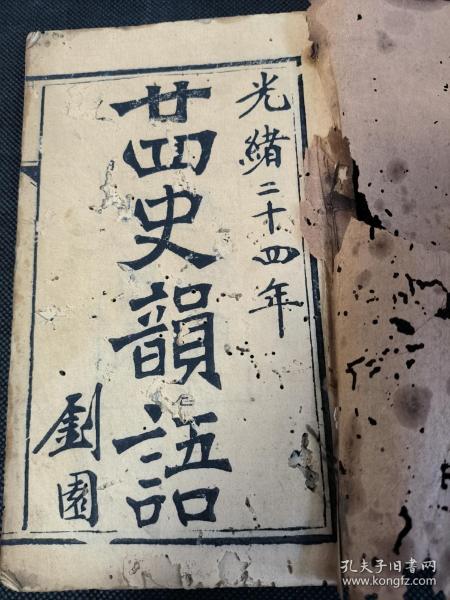 光緒二十四年
廿四史韻語
劉園
孔夫子旧书网
www.kongfz.com